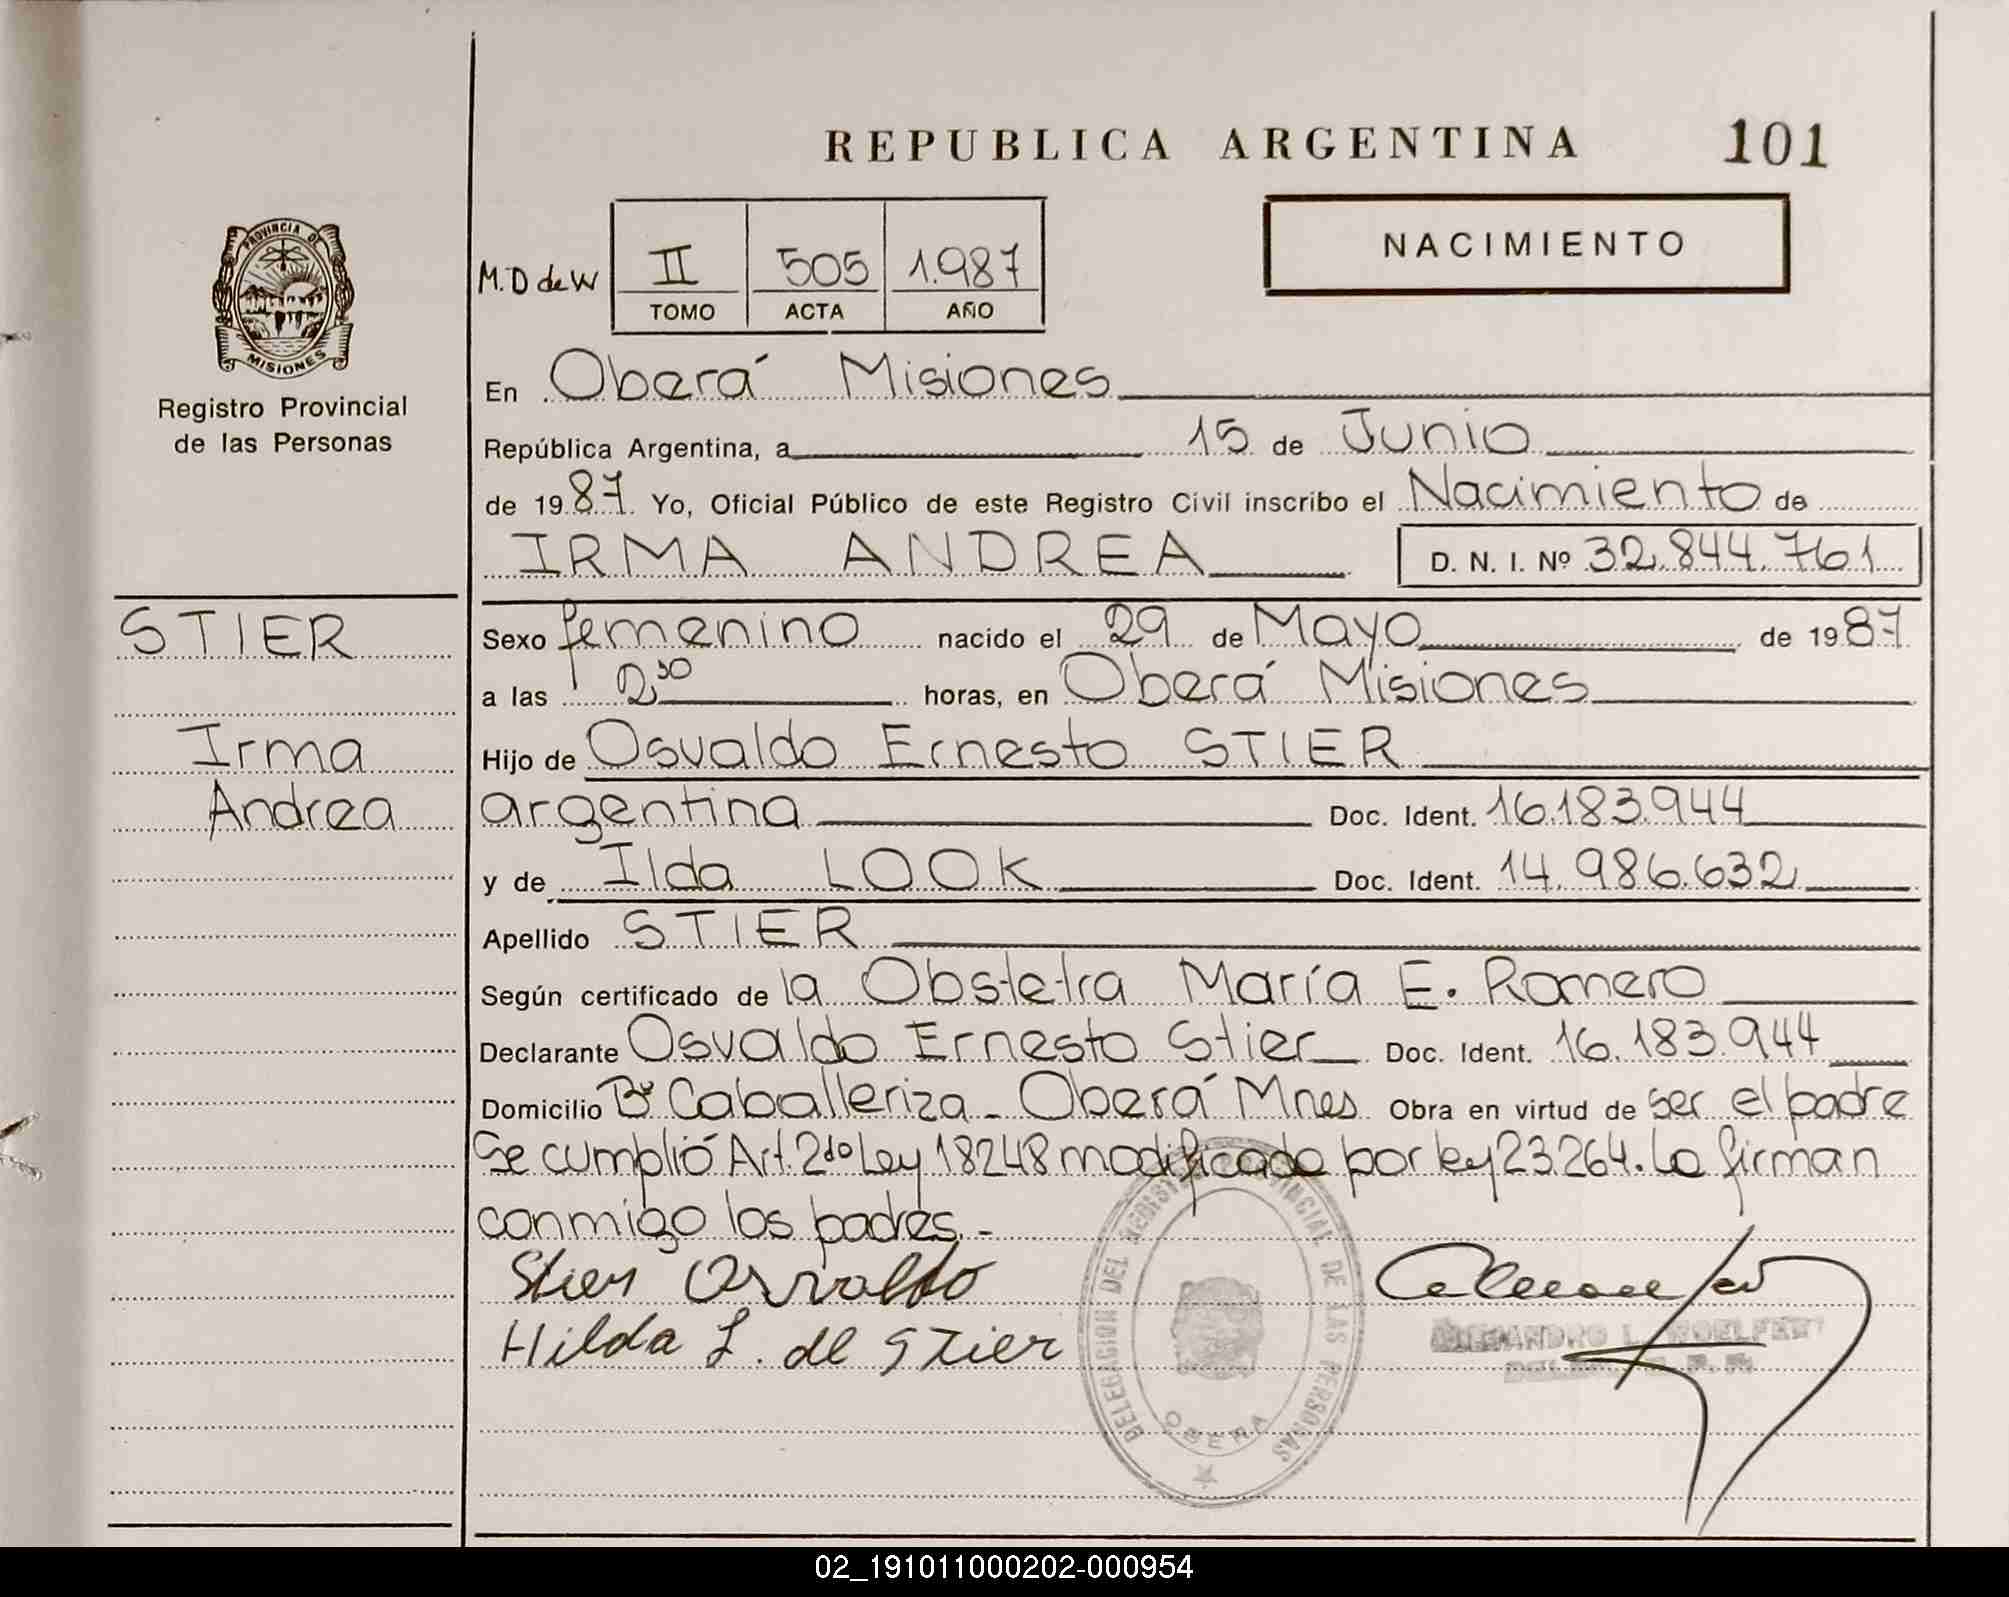 REPUBLICA ARGENTINA 101
PROVINCIA DE
MISIONES
Registro Provincial
de las Personas
NACIMIENTO
M.D de W II 505 1.987
TOMO ACTA AÑO
En Oberá Misiones
República Argentina, a 15 de Junio
de 1987. Yo, Oficial Público de este Registro Civil inscribo el Nacimiento de
IRMA ANDREA D. N. I. Nº 32.844.761
STIER
Irma
Andrea
Sexo femenino nacido el 29 de Mayo de 1987
a las 2,30 horas, en Oberá Misiones
Hijo de Osvaldo Ernesto STIER
argentina Doc. Ident. 16.183.944
y de Ilda LOOK Doc. Ident. 14.986.632
Apellido STIER
Según certificado de la Obstetra María E. Romero
Declarante Osvaldo Ernesto Stier Doc. Ident. 16.183.944
Domicilio Bº Caballeriza - Oberá Mnes Obra en virtud de ser el padre
Se cumplió Art. 2do Ley 18248 modificado por ley 23.264. Lo firman
conmigo los padres.-
Stier Osvaldo
Hilda L. de Stier
DELEGACION DEL REGISTRO PROVINCIAL DE LAS PERSONAS
OBERA
02_191011000202-000954